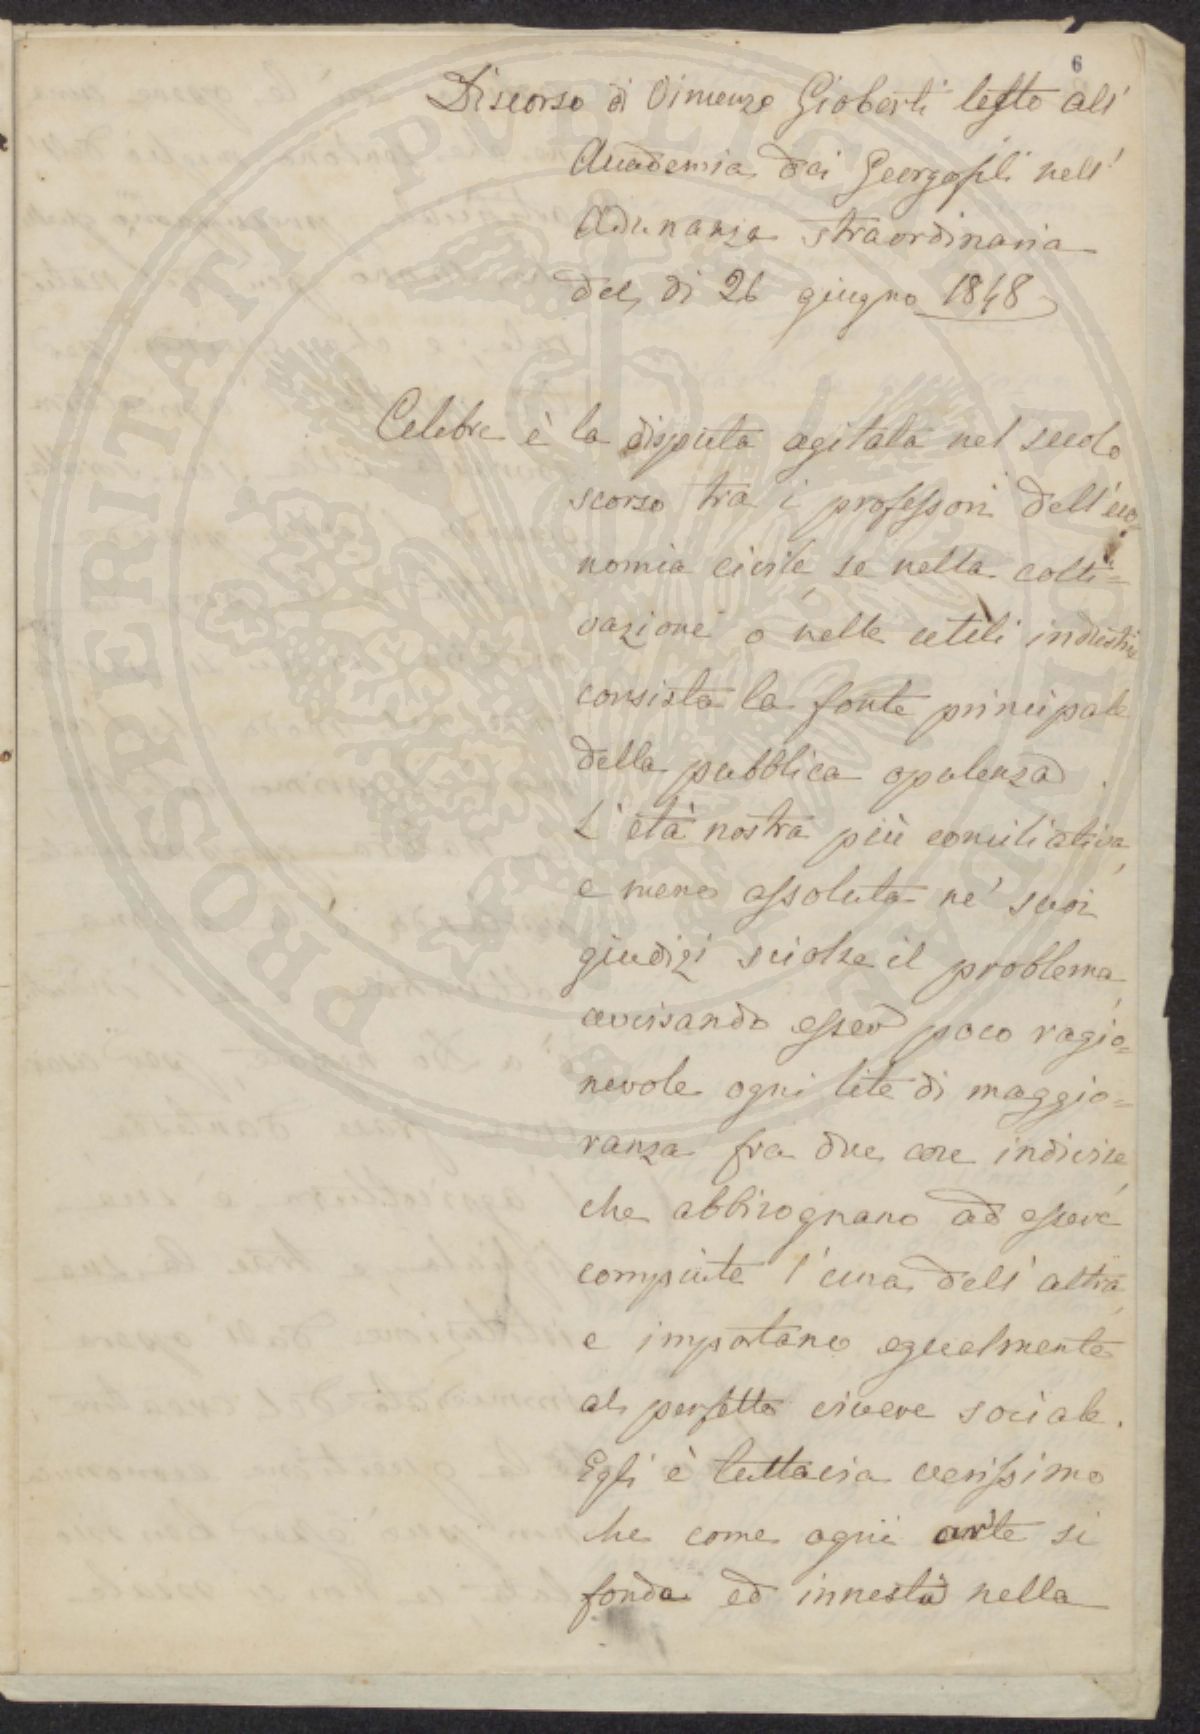 6
Discorso di Vincenzo Gioberti letto all'
Accademia dei Georgofili nell'
Adunanza straordinaria
del dì 26 giugno 1848
Celebre è la disputa agitata nel secolo
scorso tra i professori dell'eco=
nomia civile se nella colti=
vazione o nelle utili industrie
consista la fonte principale
della pubblica opulenza.
L'età nostra più conciliativa,
e meno assoluta ne' suoi
giudizi sciolse il problema,
avvisando esser poco ragio=
nevole ogni lite di maggio=
ranza fra due cose indivise,
che abbisognano ad essere
compiute l'una dell'altra,
e importano egualmente
al perfetto vivere sociale.
Egli è tuttavia verissimo
che come ogni arte si
fonda ed innesta nella
PROSPERITATI PUBLICAE AUGENDAE